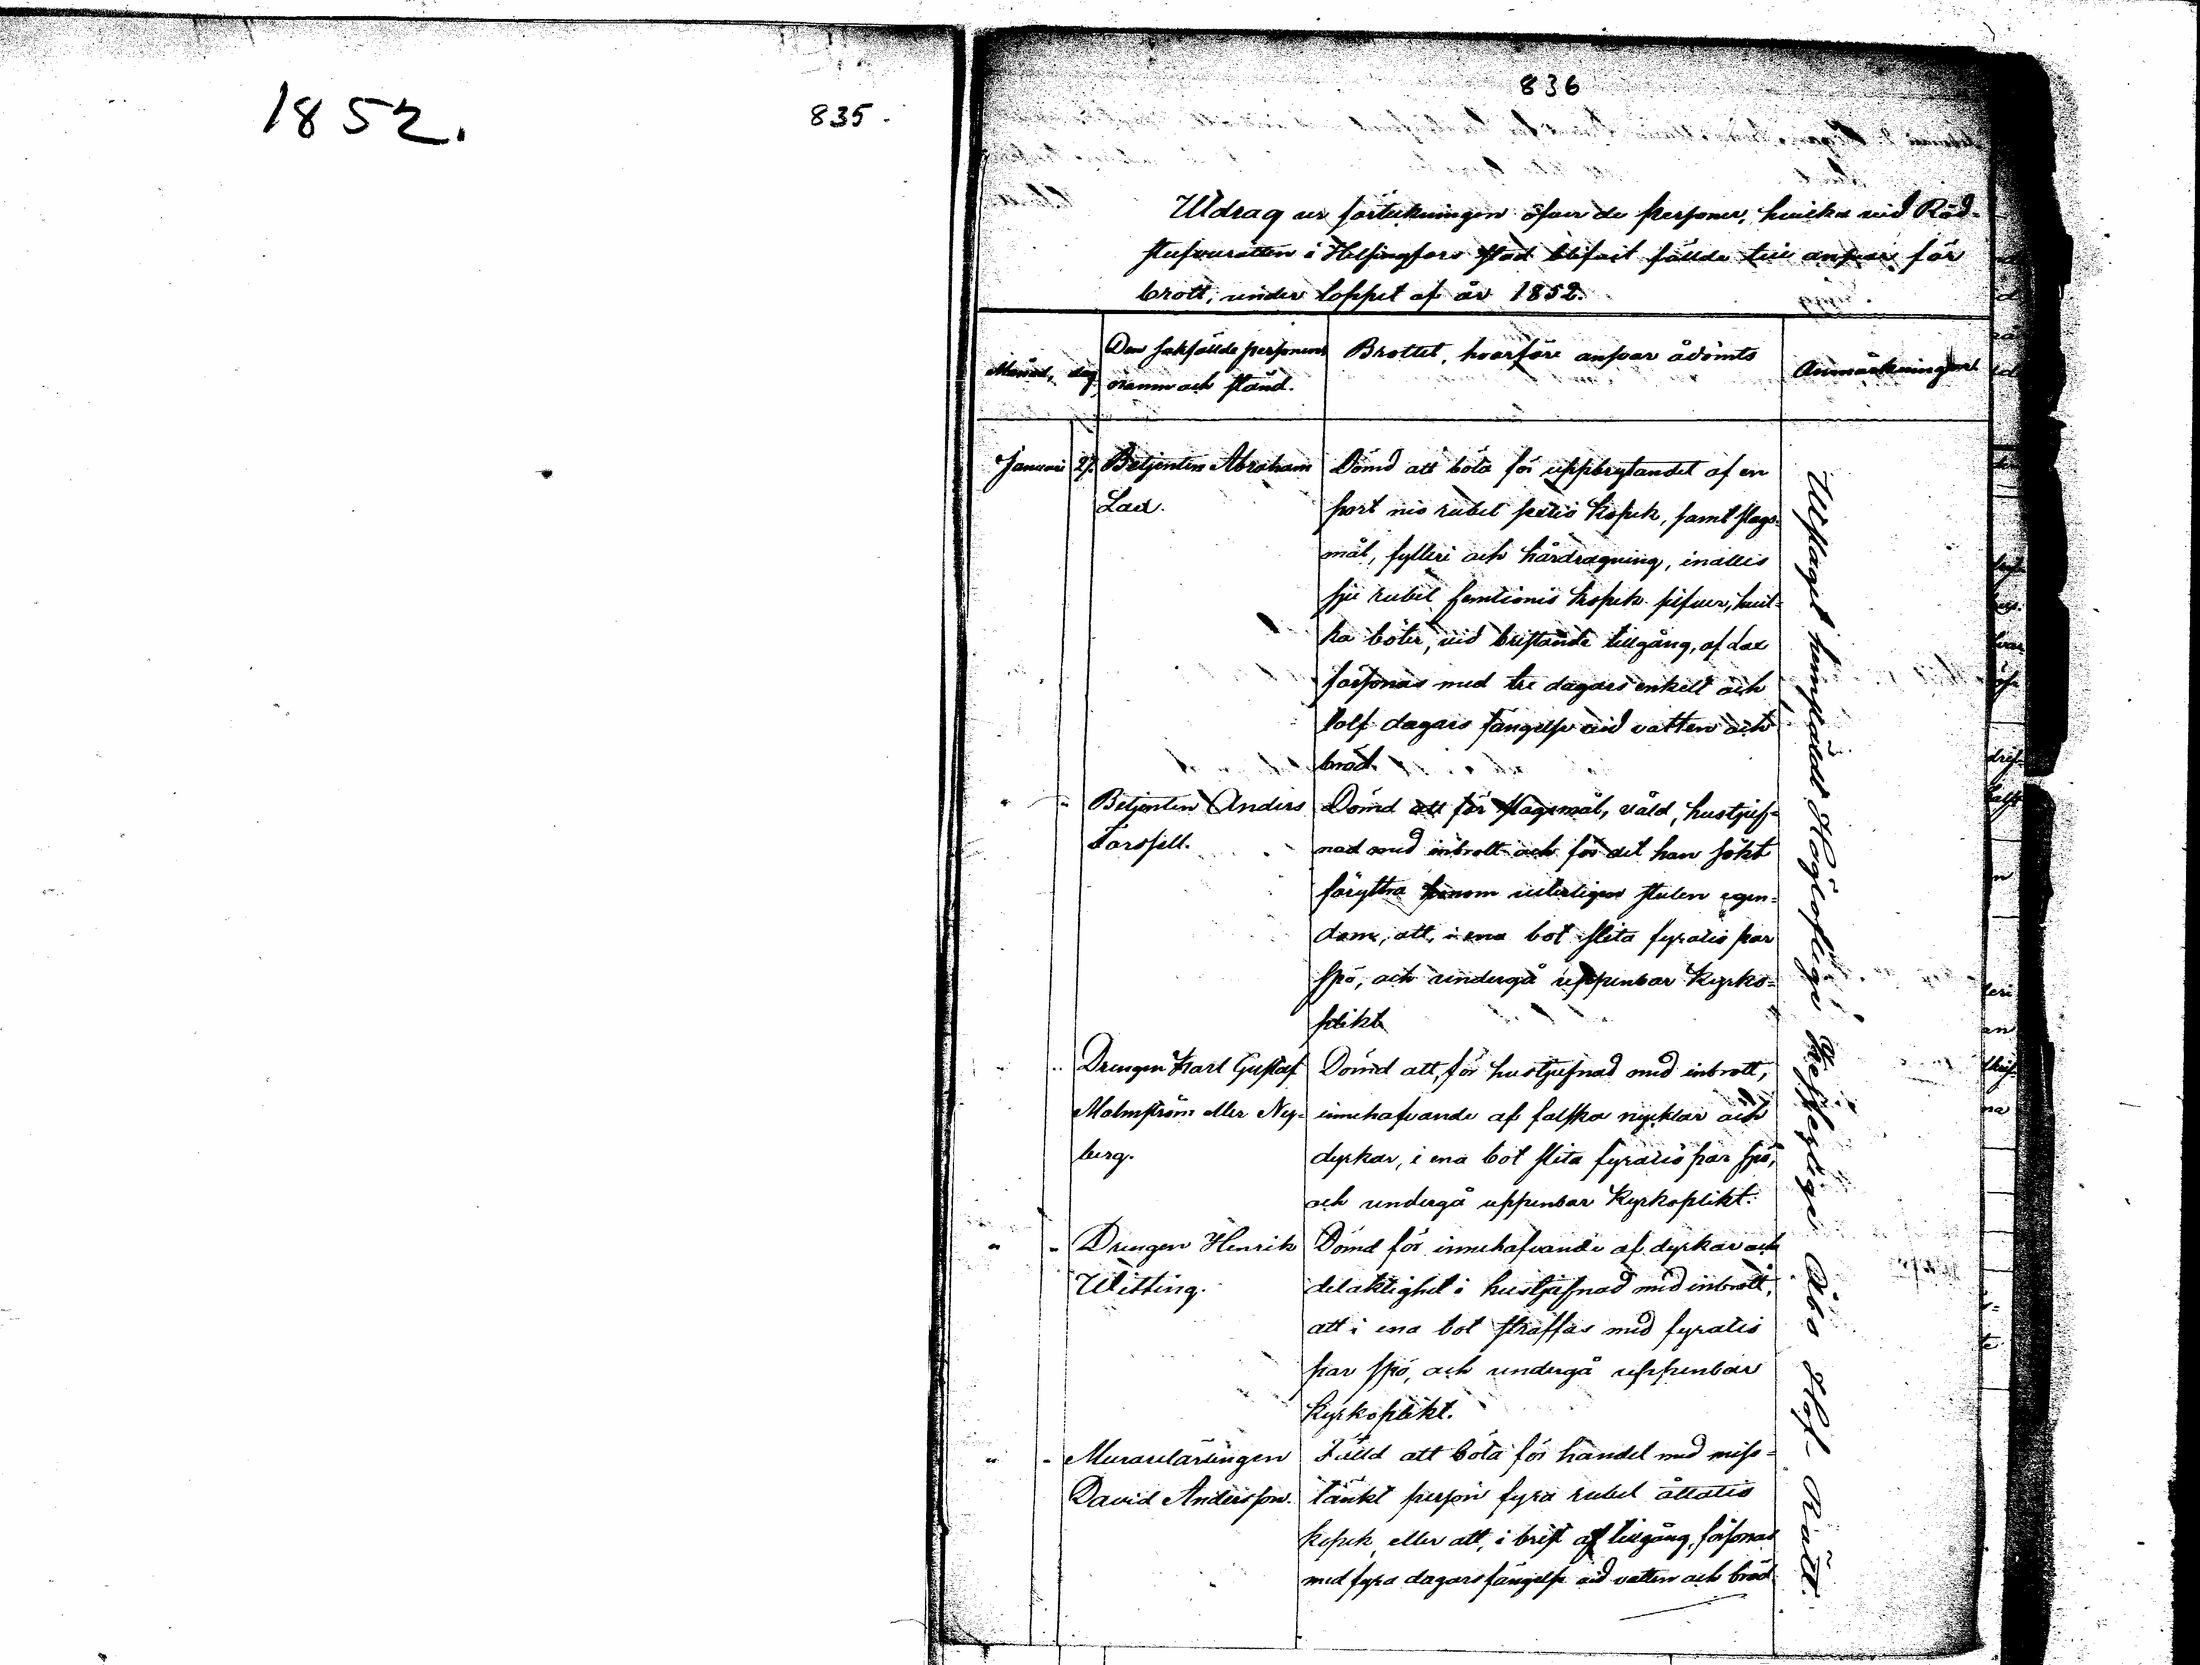 1852.
835.
836
Utdrag ur förtekningen öfver de personer, hvilka vid Råd-
stufvurätten i Helsingfors stad blifvit fällde till ansvar för
brott, under loppet af år 1852.
Månad, dag
Den sakfällde personens
namn och stånd.
Brottet, hvarföre ansvar ådömts
Anmärkningar.
Januari 27. Betjenten Abraham
Lax.
Dömd att böta för uppbrytandet af en
port nio rubel sextio kopek, samt slags-
mål, fylleri och hårdragning, inalles
sju rubel femtionio kopek silfver, hvil-
ka böter, vid bristande tillgång, af Lax
försonas med tre dagars enkelt och
tolf dagars fängelse vid vatten och
bröd.
" " Betjenten Anders
Forssell.
Dömd att för slagsmål, våld, hustjuf-
nad med inbrott och för det han sökt
föryttra honom veterligen stulen egen-
dom, att, i ena bot slita fyratio par
spö, och undergå uppenbar kyrko-
plikt
" " Drengen Karl Gustaf
Malmström eller Ny-
berg.
Dömd att, för hustjufnad med inbrott,
innehafvande af falska nycklar och
dyrkar, i ena bot slita fyratio par spö,
och undergå uppenbar kyrkoplikt.
" " Drengen Henrik
Witting.
Dömd för innehafvande af dyrkar och
delaktighet i hustjufnad med inbrott,
att i ena bot straffas med fyratio
par spö, och undergå uppenbar
kyrkoplikt.
" " Murarelärlingen
David Andersson.
Fälld att böta för handel med miss-
tänkt person fyra rubel åttatio
kopek, eller att, i brist af tillgång, försonas
med fyra dagars fängelse vid vatten och bröd
Utslaget hemstäldt Höglofliga Kejserliga Åbo Hof Rätt.